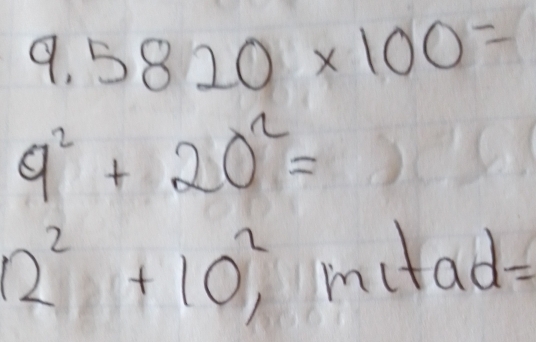 9.5820 x 100 =
9² + 20² =
12² + 10², mitad =